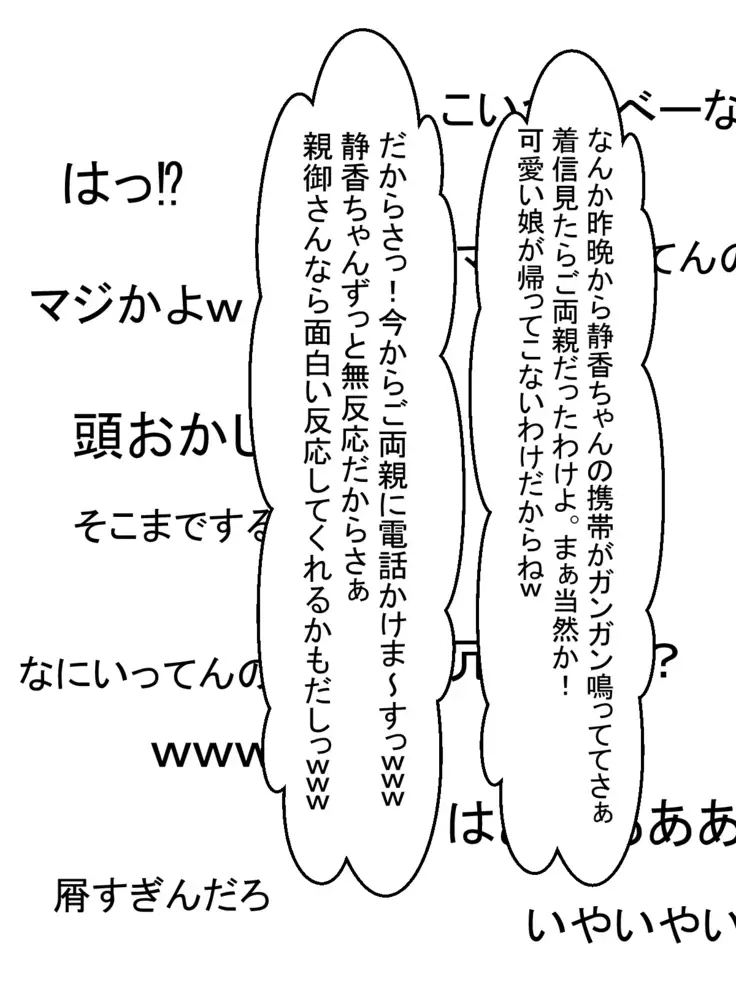 なんか昨晩から静香ちゃんの携帯がガンガン鳴っててさぁ
着信見たらご両親だったわけよ。まぁ当然か!
可愛い娘が帰ってこないわけだからねw
だからさっ!今からご両親に電話かけま～すっwww
静香ちゃんずっと無反応だからさぁ
親御さんなら面白い反応してくれるかもだしっwww
こい
べーな
てんの
?
は
ああ
いやいやい
はっ!?
マジかよw
頭おかし
そこまでする
なにいってんの
www
屑すぎんだろ